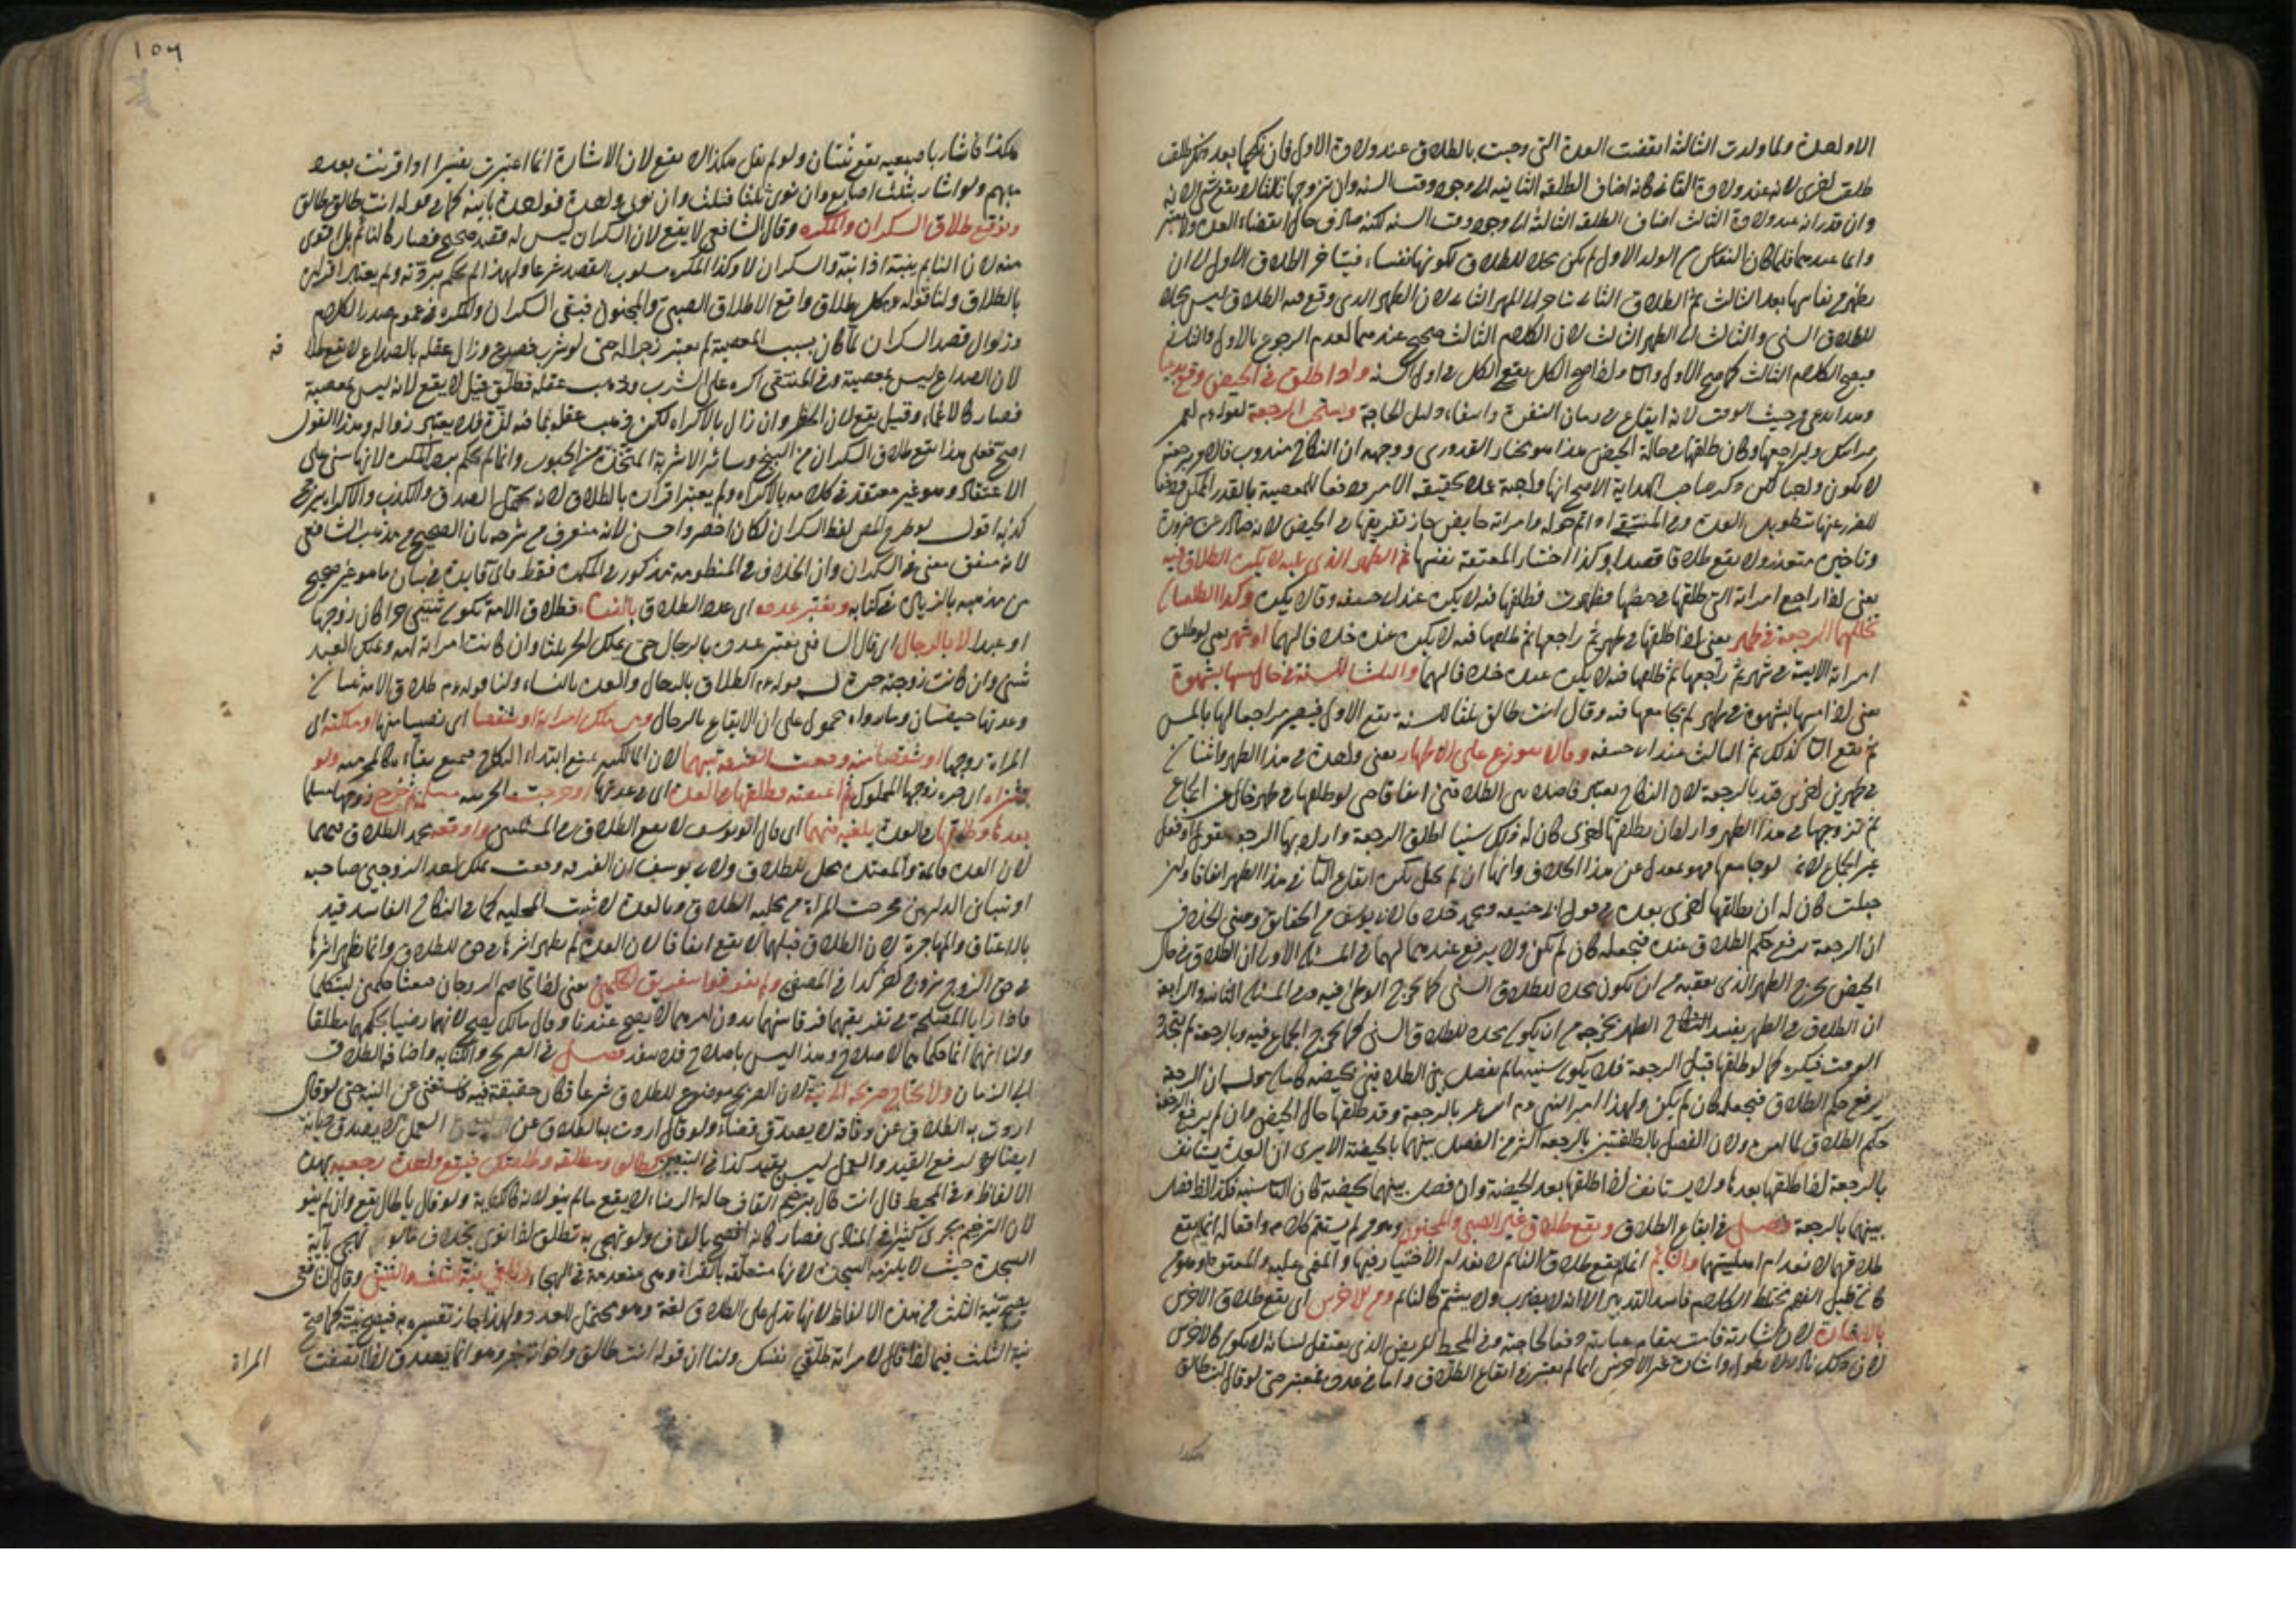 الا واحدة ولما ولدت الثالثة انقضت العدة التي وجبت بالطلاق عند ولادة الاول فان نكحها بعد ذكر طلقت
طلقة اخرى لانه عند ولادة الثاني كانه اضاف الطلقة الثانية الى وجود وقت السنة وان تزوجها ثالثا لا يقع شئ لانه
وان قدر انه عند ولادة الثالث اضاف الطلقة الثالثة الى وجود وقت السنة لكنه صادف حال انقضاء العدة
واما عندهما فلما كان النفاس من الولد الاول لم تكن محلا للطلاق لكونها نفساء فيتأخر الطلاق الاول الى ان
تطهر من نفاسها بعد الثالث ثم الطلاق الثاني الى الطهر الثاني لان الطهر الذي وقع فيه الطلاق ليس محلا
للطلاق السني والثالث الى الطهر الثالث لان الكلام الثالث صحيح عندهما لعدم الرجوع بالاول والثاني
فيصح الكلام الثالث كما صح الاول والثاني واذا صح الكل يقع الكل في اول السنة واذا طلق في الحيض وقع بدعيا
وهذا بدعي من حيث الوقت لانه ايقاع في زمان النفرة وانتفاء دليل الحاجة ويستحب الرجعة لقوله عم لعمر
مر ابنك وليراجعها وكان طلقها في حالة الحيض هذا هو مختار القدوري ووجهه ان النكاح مندوب فالرجعة
لا يكون واجبا لكن ذكر صاحب الهداية الاصح انها واجبة عملا بحقيقة الامر ودفعا للمعصية بالقدر الممكن
للضرر عنها بتطويل العدة وفي المنتقى اذا تم حوله وامراته حايض جاز تفريقها في الحيض لانه صادر عن ضرورة
وتاخيره متعذر ولا يقع طلاقا قصدا وكذا اختيار المعتقة نفسها ثم الطهر الذي يليه لا يكره الطلاق فيه
يعني اذا راجع امراته التي طلقها في حيضها فطهرت فطلقها فيه لا يكره عند ابي حنيفة وقالا يكره وكذا الطلقات
تخللها الرجعة في طهر يعني اذا طلقها في طهر ثم راجعها ثم طلقها فيه لا يكره عنده خلافا لهما او شهر يعني لو طلق
امراته الآيسة في شهر ثم راجعها ثم طلقها فيه لا يكره عنده خلافا لهما والثلث للسنة في حال مسها بشهوة
يعني اذا مسها بشهوة في طهر لم يجامعها فيه وقال انت طالق ثلثا للسنة يقع الاول فيصير مراجعا لها بالمس
ثم يقع الثاني كذلك ثم الثالث عند ابي حنيفة وقالا يتوزع على الاطهار يعني واحدة في هذا الطهر واثنتان
في طهرين اخرين قيد بالرجعة لان النكاح يعتبر فاصلا بين الطلاقين اتفاقا حتى لو طلقها في طهر خال عن الجماع
ثم تزوجها في هذا الطهر واراد ان يطلقها اخرى كان له ذلك سنيا اطلق الرجعة واراد بها الرجعة بقول او فعل
غير الجماع لانه لو جامعها فهو بمعزل عن هذا الخلاف وانها ان لم تحبل يكره ايقاع الثاني في هذا الطهر اتفاقا وان
حبلت كان له ان يطلقها اخرى بعده في قول ابي حنيفة ومحمد خلافا لابي يوسف من الحقايق ومبنى الخلاف
ان الرجعة ترفع حكم الطلاق عنده فتجعله كان لم يكن ولا يرفع عندهما لهما في المسئلة الاولى ان الطلاق في حال
الحيض يخرج الطهر الذي يعقبه من ان يكون محلا للطلاق السني كما يخرج الوطئ فيه وفي المسئلة الثانية والرابعة
ان الطلاق في الطهر يخرجه من ان يكون محلا للطلاق السني كما يخرج الجماع فيه وبالرجعة لم يتجدد
الوقت فيكره كما لو طلقها قبل الرجعة فلا يكون سنيا ما لم يفصل بين الطلاقين بحيضة كاملة وله ان الرجعة
ترفع حكم الطلاق فتجعله كان لم يكن ولهذا امر النبي عم ابن عمر بالرجعة وقد طلقها حال الحيض وان لم يرفع الرجعة
حكم الطلاق لما امره ولان الفصل بالطلقتين بالرجعة اكثر من الفصل بينهما بالحيضة الا يرى ان العدة يستانف
بالرجعة اذا طلقها بعدها ولا يستانف اذا طلقها بعد الحيضة وان فصل بينهما بحيضة كان الثاني سنيا فكذا اذا فصل
بينهما بالرجعة فصل في ايقاع الطلاق ويقع طلاق غير الصبي والمجنون وهو من لم يستقم كلامه وافعاله انما لم يقع
طلاقهما لانعدام اهليتهما والنايم انما لم يقع طلاق النايم لانعدام الاختيار فيها والمغمى عليه والمعتوه وهو من
كان قليل الفهم مختلط الكلام فاسد التدبير الا انه لا يضرب ولا يشتم كالنايم ومن الاخرس اي يقع طلاق الاخرس
بالاشارة لان اشارته قامت مقام عبارته دفعا لحاجته وفي المحيط المريض الذي يعتقل لسانه لا يكون كالاخرس
لان ذلك نادر ولا يطول واشارة غير الاخرس انما لم يعتبر في ايقاع الطلاق واما في عدده فمعتبر حتى لو قال انت طالق
هكذا
١٥٦
هكذا فاشار باصبعيه يقع ثنتان ولو لم يقل هكذا لا يقع لان الاشارة انما اعتبرت تفسيرا اذا اقرنت بعدد
مبهم ولو اشار بثلث اصابع وان نوى ثلثا فثلث وان نوى واحدة فواحدة باينة كما في قوله انت طالق طالق
ونوقع طلاق السكران والمكره وقال الشافعي لا يقع لان السكران ليس له قصد صحيح فصار كالنائم بل اقوى
منه لان النايم ينتبه اذا نبه والسكران لا وكذا المكره مسلوب القصد شرعا ولهذا لم يحكم بردته ولم يعتبر اقراره
بالطلاق ولنا قوله وكل طلاق واقع الا طلاق الصبي والمجنون فبقي السكران والمكره في عموم صدر الكلام
وزوال قصد السكران لما كان بسبب المعصية لم يعتبر زجرا له حتى لو شرب فصدع وزال عقله بالصداع لا يقع طلا قه
لان الصداع ليس بمعصية وفي المنتقى اكره على الشرب وذهب عقله فطلق قيل لا يقع لانه ليس بمعصية
فصار كالاغماء وقيل يقع لان الحظر وان زال بالاكراه لكن ذهب عقله بما فيه لذة فلا يعتبر زواله وهذا القول
اصح فعلى هذا يقع طلاق السكران من البنج وسائر الاشربة المتخذة من الحبوب وانما لم يحكم بردة المكره لانها تبنى على
الاعتقاد وهو غير معتقد في كلامه بالاكراه ولم يعتبر اقراره بالطلاق لانه يحتمل الصدق والكذب والاكراه يرجح
كذبه اقول لو طرح المص لفظ السكران لكان اخصر واحسن لانه معترف في شرحه بان الصحيح من مذهب الشافعي
لانه متفق معنى في السكران وان الخلاف في المنظومة مذكور في المكره فقط فاي فايدة في بيان ما هو غير صحيح
من مذهبه بالزيادة في كتابه ويعتبر عدده اي عدد الطلاق بالنساء فطلاق الامة يكون ثنتين حرا كان زوجها
او عبدا لا بالرجال اي قال الشافعي يعتبر عدده بالرجال حتى يملك الحر ثلثا وان كانت امراته امة ويملك العبد
ثنتين وان كانت زوجته حرة له قوله عم الطلاق بالرجال والعدة بالنساء ولنا قوله عم طلاق الامة ثنتان
وعدتها حيضتان وما رواه محمول على ان الايقاع بالرجال ومن ملك امراته او شقصا اي نصيبا منها او ملكته اي
المراة زوجها او شقصا منه وقعت الفرقة بينهما لان المالكية تمنع ابتداء النكاح فتمنع بقاءه كالمحرمية ولو
شراء اي حرة زوجها المملوك ثم اعتقته فطلقها في العدة اي في عدتها او خرجت الحربية مسلمة ثم خرج زوجها مسلما
بعدها وطلقها في العدة يلغيه فيهما اي قال ابو يوسف لا يقع الطلاق في المسئلتين واوقعه محمد الطلاق فيهما
لان العدة قائمة والمعتدة محل للطلاق ولابي يوسف ان الفرقة وقعت بملك احد الزوجين صاحبه
او تباين الدارين فخرجت المراة من محلية الطلاق وبالعدة لا تثبت المحلية كما في النكاح الفاسد قيد
بالاعتاق والمهاجرة لان الطلاق قبلهما لا يقع اتفاقا لان العدة لم يظهر اثرها في حق الطلاق وانما يظهر اثرها
في حق التزوج بزوج اخر كذا في المصفى ولم نفذوا تفريق الحكمين يعني اذا تخاصم الزوجان فبعثا حكمين ليتكلما
فاذا رايا المصلحة في تفريقهما فرقا بينهما بدون امرهما لا يصح عندنا وقال مالك يصح لانهما رضيا بحكمهما مطلقا
ولنا انهما انما حكما بينهما للاصلاح وهذا ليس باصلاح فلا ينفذ فصل في الصريح والكناية واضافة الطلاق
الى الزمان ولا يحتاج صريحه الى نية لان الصريح موضوع للطلاق شرعا فكان حقيقة فيه فاستغنى عن النية حتى لو قال
اردت به الطلاق عن وثاق لا يصدق قضاء ولو قال اردت بالطلاق عن العمل لا يصدق ديانة
ايضا لانه لرفع القيد والعمل ليس بقيد كذا في التبيين كطالق ومطلقة وطلقتك فيقع واحدة رجعية بهذه
الالفاظ وفي المحيط قال انت طال بترخيم القاف حالة الرضاء لا يقع ما لم ينو لانه كالكناية ولو قال يا طال يقع وان لم ينو
لان الترخيم يجري كثيرا في المنادى فصار كانه افصح بالقاف ولو تهجى به تطلق اذا نوى بخلاف ما لو تهجى بآية
السجدة حيث لا يلزمه السجدة لانها متعلقة بالقراة وهي منعدمة في الهجاء ونلغي نية الثلث والثنتين وقال الشافعي
يصح نية الثلث في هذه الالفاظ لانها تدل على الطلاق لغة وهو يحتمل العدد ولهذا جاز تفسيره به فيصح نيته كما صح
نية الثلث فيما اذا قال لامراته طلقي نفسك ولنا ان قوله انت طالق واخواته خبر وهو انما يصدق اذا اتصفت
المراة